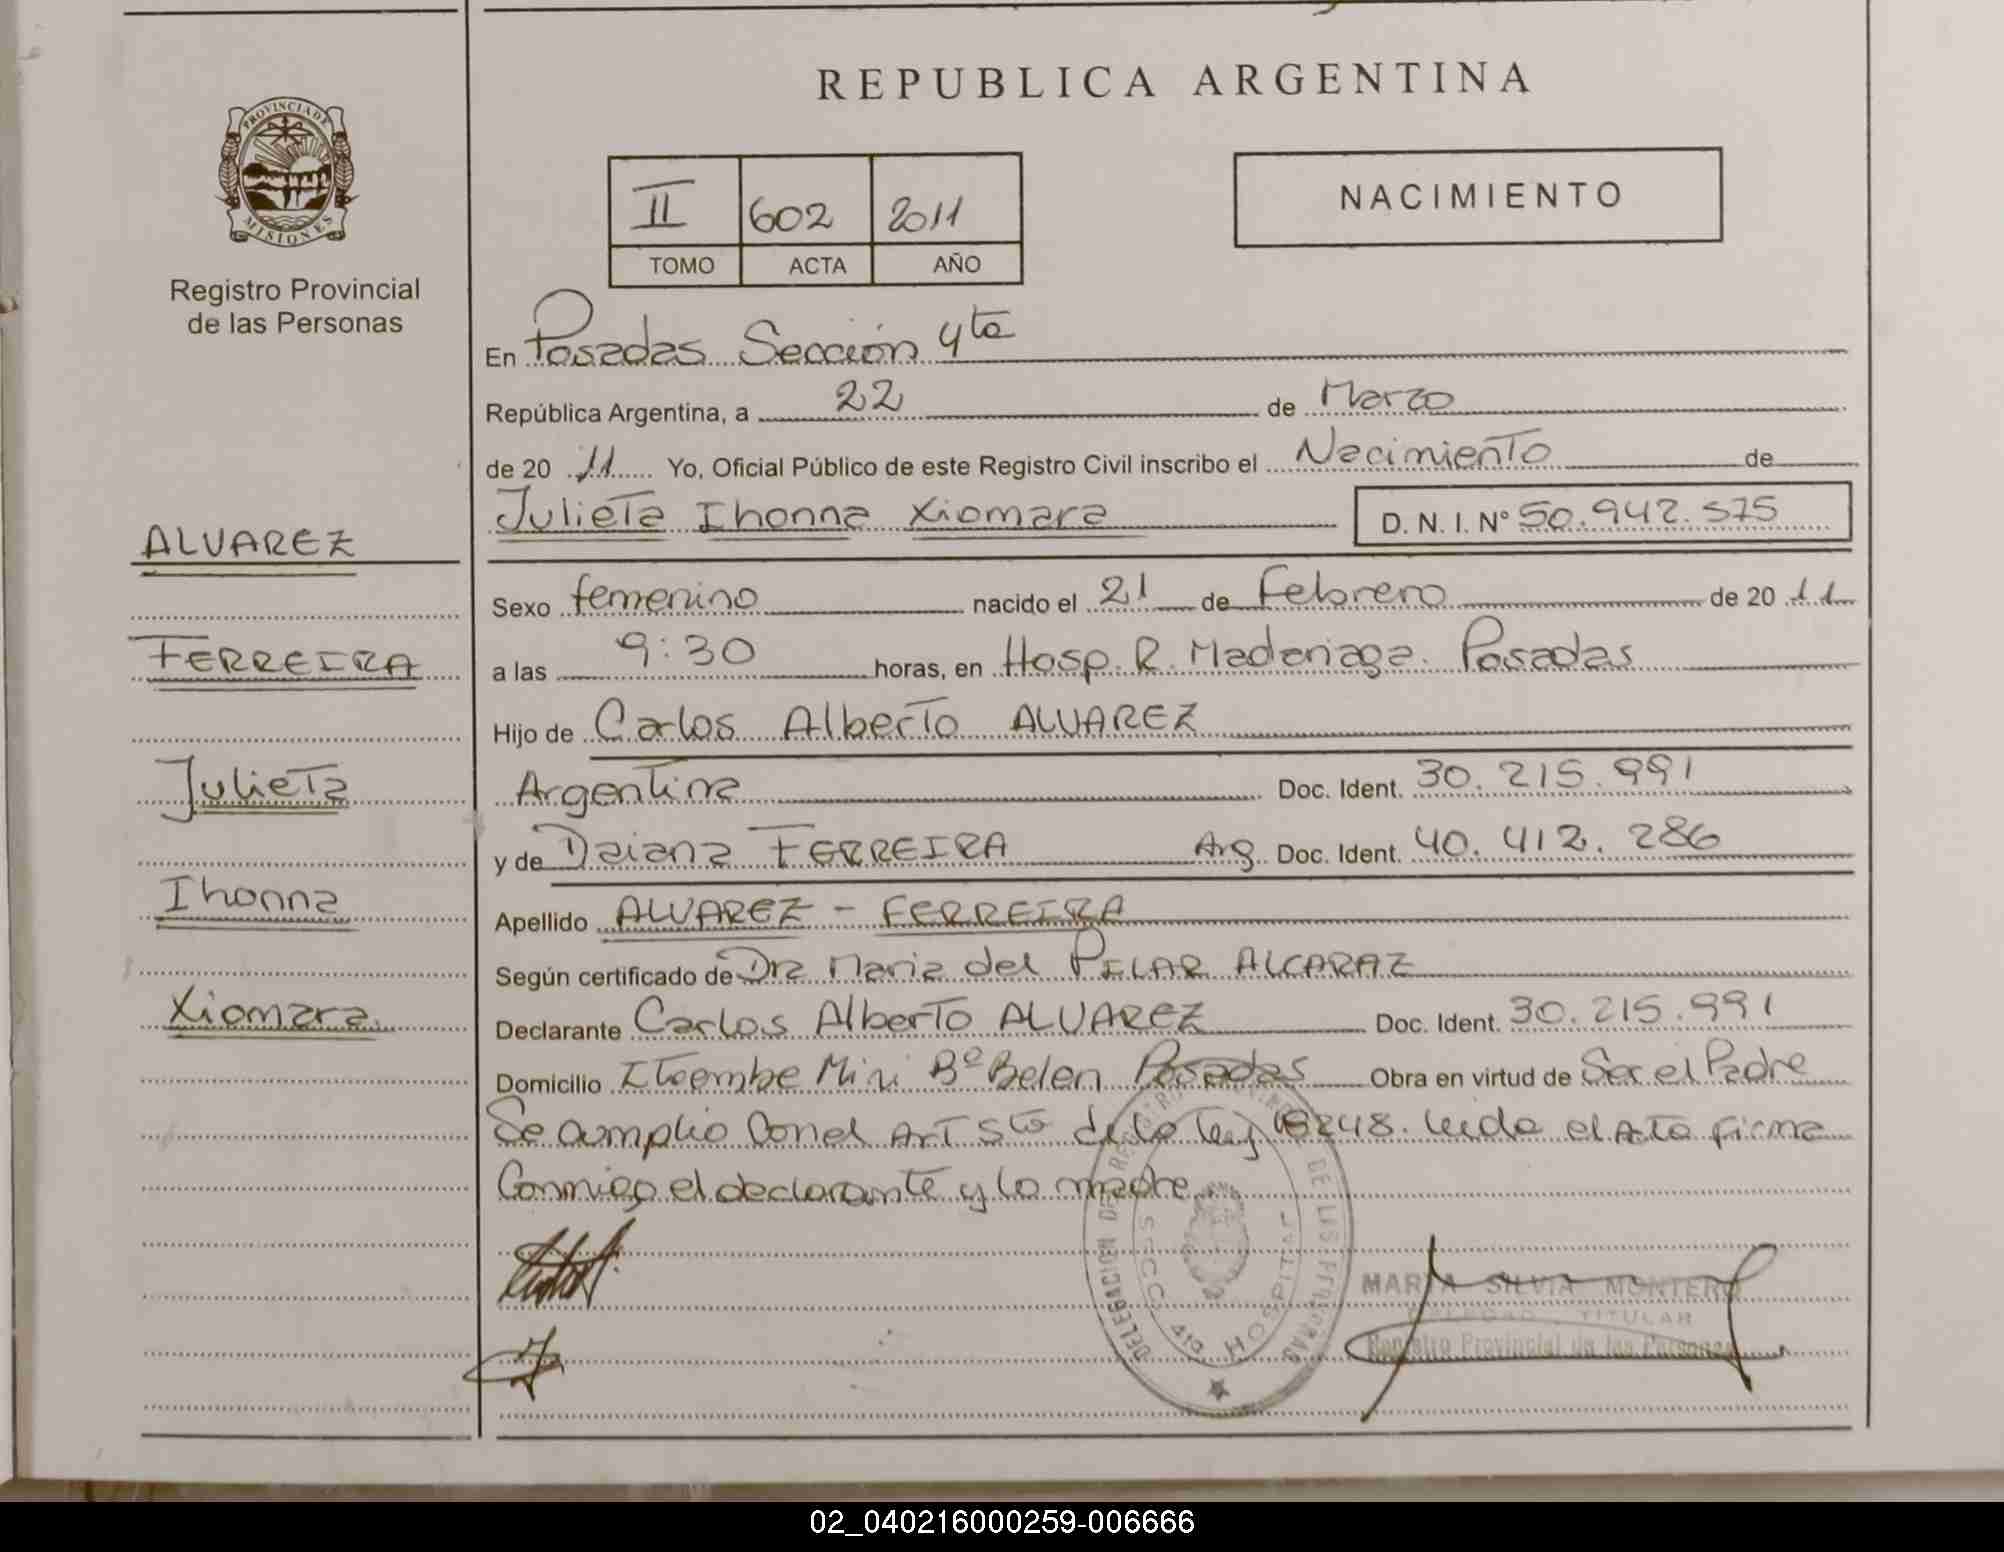 REPUBLICA ARGENTINA
PROVINCIA DE
MISIONES
Registro Provincial
de las Personas
II 602 2011
TOMO ACTA AÑO
NACIMIENTO
En Posadas Sección 4ta
República Argentina, a 22 de Marzo
de 20 11 Yo, Oficial Público de este Registro Civil inscribo el Nacimiento de
Julieta Ihonna Xiomara D. N. I. Nº 50.942.575
ALVAREZ
FERREIRA
Julieta
Ihonna
Xiomara
Sexo femenino nacido el 21 de Febrero de 20 11
a las 9:30 horas, en Hosp. R. Madariaga. Posadas
Hijo de Carlos Alberto ALVAREZ
Argentina Doc. Ident. 30.215.991
y de Daiana FERREIRA Arg. Doc. Ident. 40.412.286
Apellido ALVAREZ - FERREIRA
Según certificado de Dra Maria del PILAR ALCARAZ
Declarante Carlos Alberto ALVAREZ Doc. Ident. 30.215.991
Domicilio Itaembe Mini Bº Belen Posadas Obra en virtud de Ser el Padre
Se cumplio con el Art 5to de la ley 18248. leida el Acta firma
Conmigo el declarante y la madre
DELEGACION DEL REGISTRO PROVINCIAL DE LAS PERSONAS
SECC. 4ta HOSPITAL
MARTA SILVIA MONTERO
DELEGADA TITULAR
Registro Provincial de las Personas
02_040216000259-006666